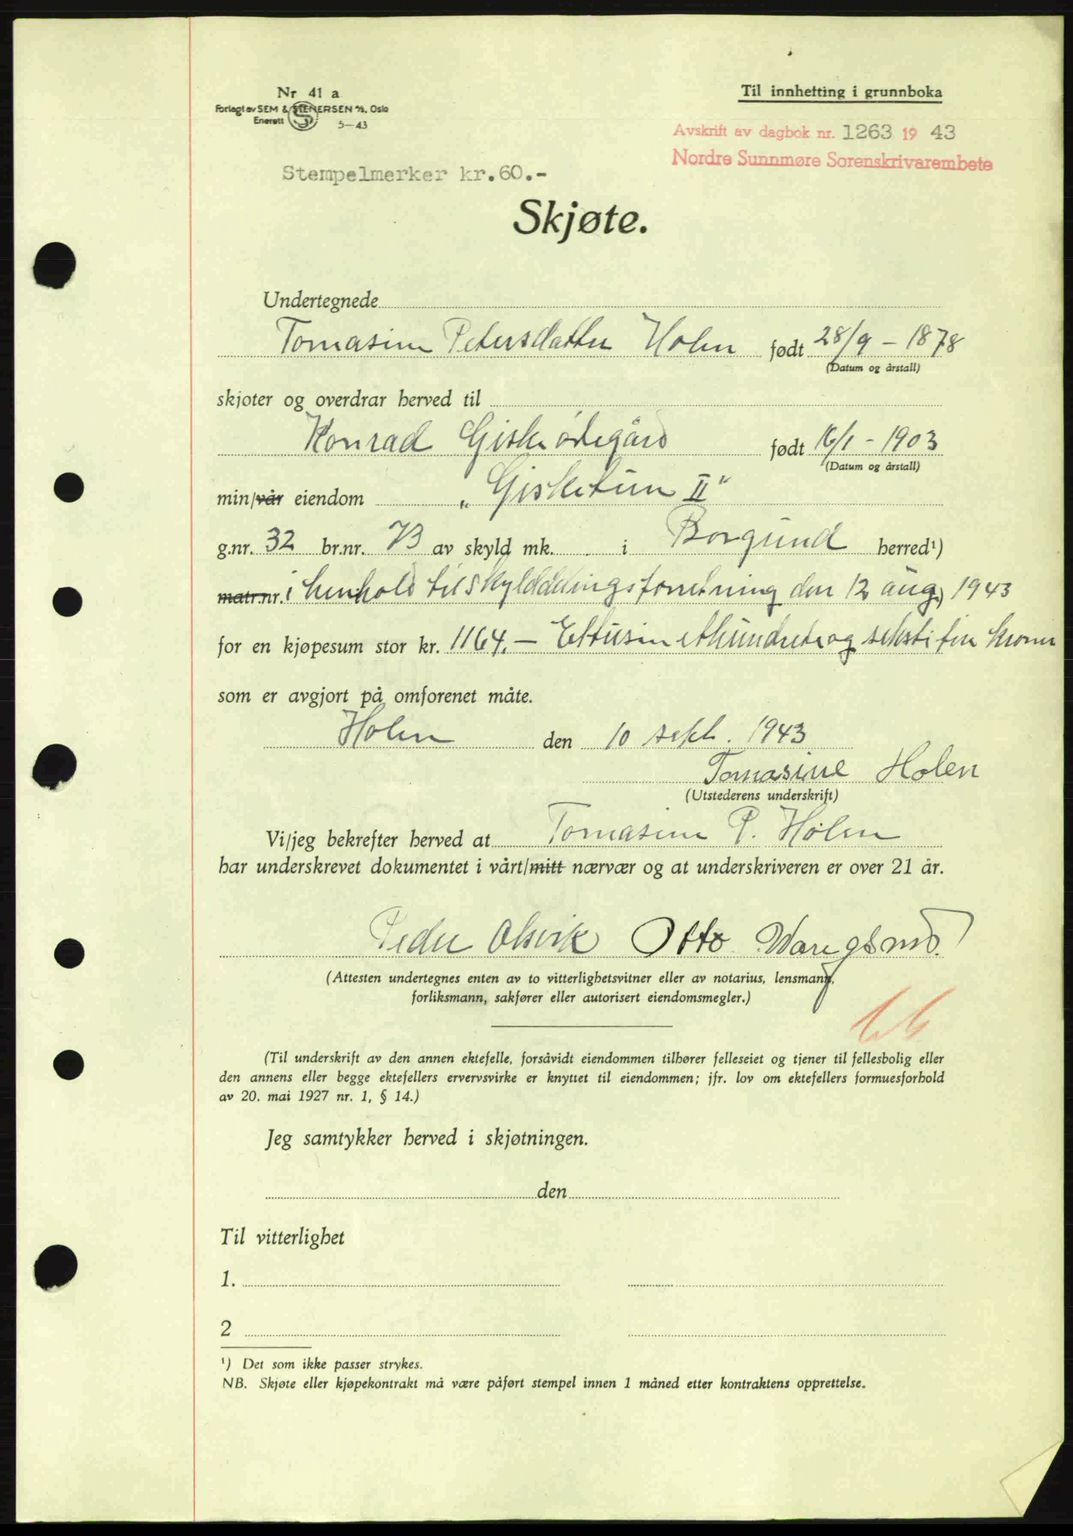 Nr 41 a
Forlagt av SEM & STENERSEN A/S, Oslo
Enerett S 5-43
Til innhefting i grunnboka
Avskrift av dagbok nr. 1263 19 43
Nordre Sunnmøre Sorenskrivarembete
Stempelmerker kr.60.-
Skjøte.
Undertegnede
Tomasine Petersdatter Holen født 28/9 - 1878
(Datum og årstall)
skjøter og overdrar herved til
Konrad Giskeødegård født 16/1 - 1903
(Datum og årstall)
min/vår eiendom „Gisketun II"
g.nr. 32 br.nr. 73 av skyld mk. i Borgund herred¹)
matr.nr. i henhold til skylddelingsforretning den 12 aug. 1943
for en kjøpesum stor kr. 1164.- Ettusinetthundreogsekstifire kroner
som er avgjort på omforenet måte.
Holen den 10 sept. 1943
Tomasine Holen
(Utstederens underskrift)
Vi/jeg bekrefter herved at Tomasine P. Holen
har underskrevet dokumentet i vårt/mitt nærvær og at underskriveren er over 21 år.
Peder Olsvik Otto
(Attesten undertegnes enten av to vitterlighetsvitner eller av notarius, lensmann,
forliksmann, sakfører eller autorisert eiendomsmegler.)
(Til underskrift av den annen ektefelle, forsåvidt eiendommen tilhører felleseiet og tjener til fellesbolig eller
den annens eller begge ektefellers ervervsvirke er knyttet til eiendommen; jfr. lov om ektefellers formuesforhold
av 20. mai 1927 nr. 1, § 14.)
Jeg samtykker herved i skjøtningen.
den
Til vitterlighet
1.
2
¹) Det som ikke passer strykes.
NB. Skjøte eller kjøpekontrakt må være påført stempel innen 1 måned etter kontraktens opprettelse.